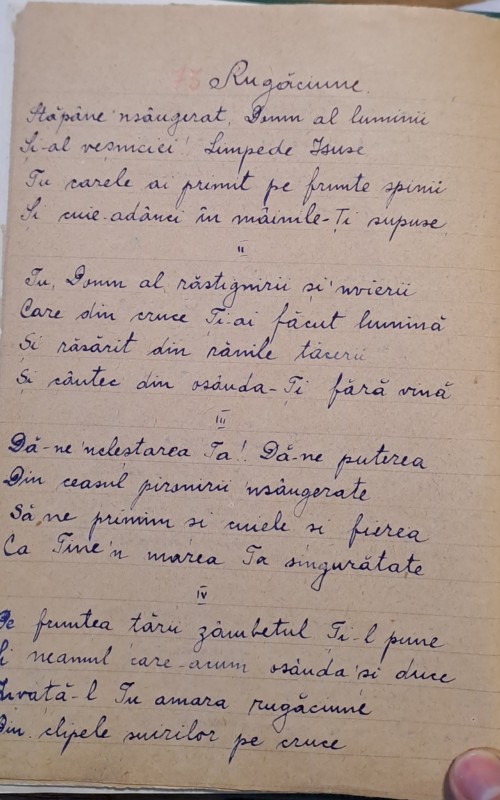 43 Rugăciune.
Stăpâne 'nsângerat, Domn al luminii
Și-al veșniciei! Limpede Isuse
Tu carele ai primit pe frunte spinii
Și cuie-adânci în mâinile-Ți supuse
II
Tu, Domn al răstignirii și 'nvierii
Care din cruce Ți-ai făcut lumină
Și răsărit din rănile tăcerii
Și cântec din osânda-Ți fără vină
III
Dă-ne 'nclestarea Ta! Dă-ne puterea
Din ceasul pironirii 'nsângerate
Să ne primim si cuiele si fierea
Ca Tine 'n marea Ta singurătate
IV
Pe fruntea țării zâmbetul Ti-l pune
Si neamul care-acum osânda 'si duce
Învată-l Tu amara rugăciune
Din clipele suirilor pe cruce